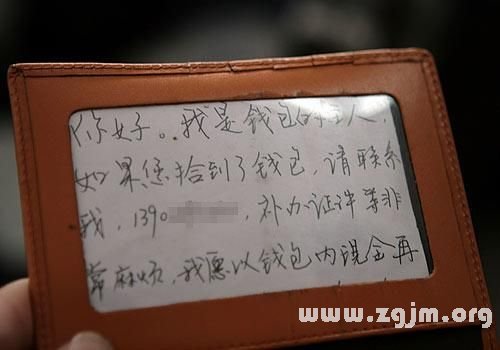 你好。我是钱包的主人,
如果您拾到了钱包,请联系
我,1390 ,补办证件等非
常麻烦,我愿以钱包内现金再
www.zgjm.org